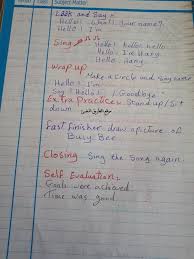 Subject Matter
Look and Say :
Hello! What's your name?
Hello! I'm
Sing
Hello! Hello! hello
Hello! I'm Hany
Hello, Hany
Wrap up
Make a Circle and say name
Hello! I'm
Say! Hello! / Goodbye
Extra Practice: Stand up/sit
down
Fast finisher draw a picture of
Busy Bee
Closing Sing the Song again.
Self Evaluation:
Goals were achieved
Time was good